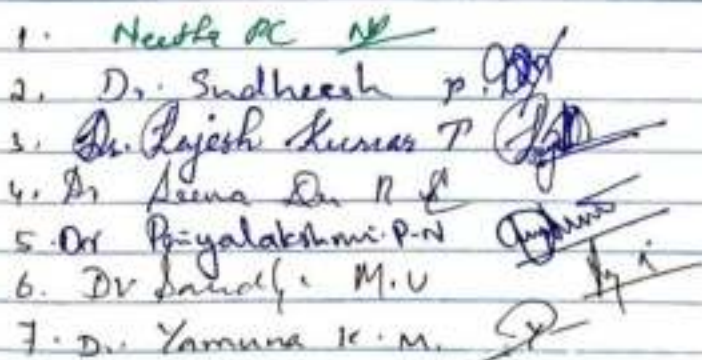 1. Neetha PC
2. Dr. Sudheesh P.
3. Dr. Rajesh Kumar T
4. Dr Seena
5. Dr Priyalakshmi. P-N
6. Dr Sandhya M.U
7. Dr. Yamuna K. M.